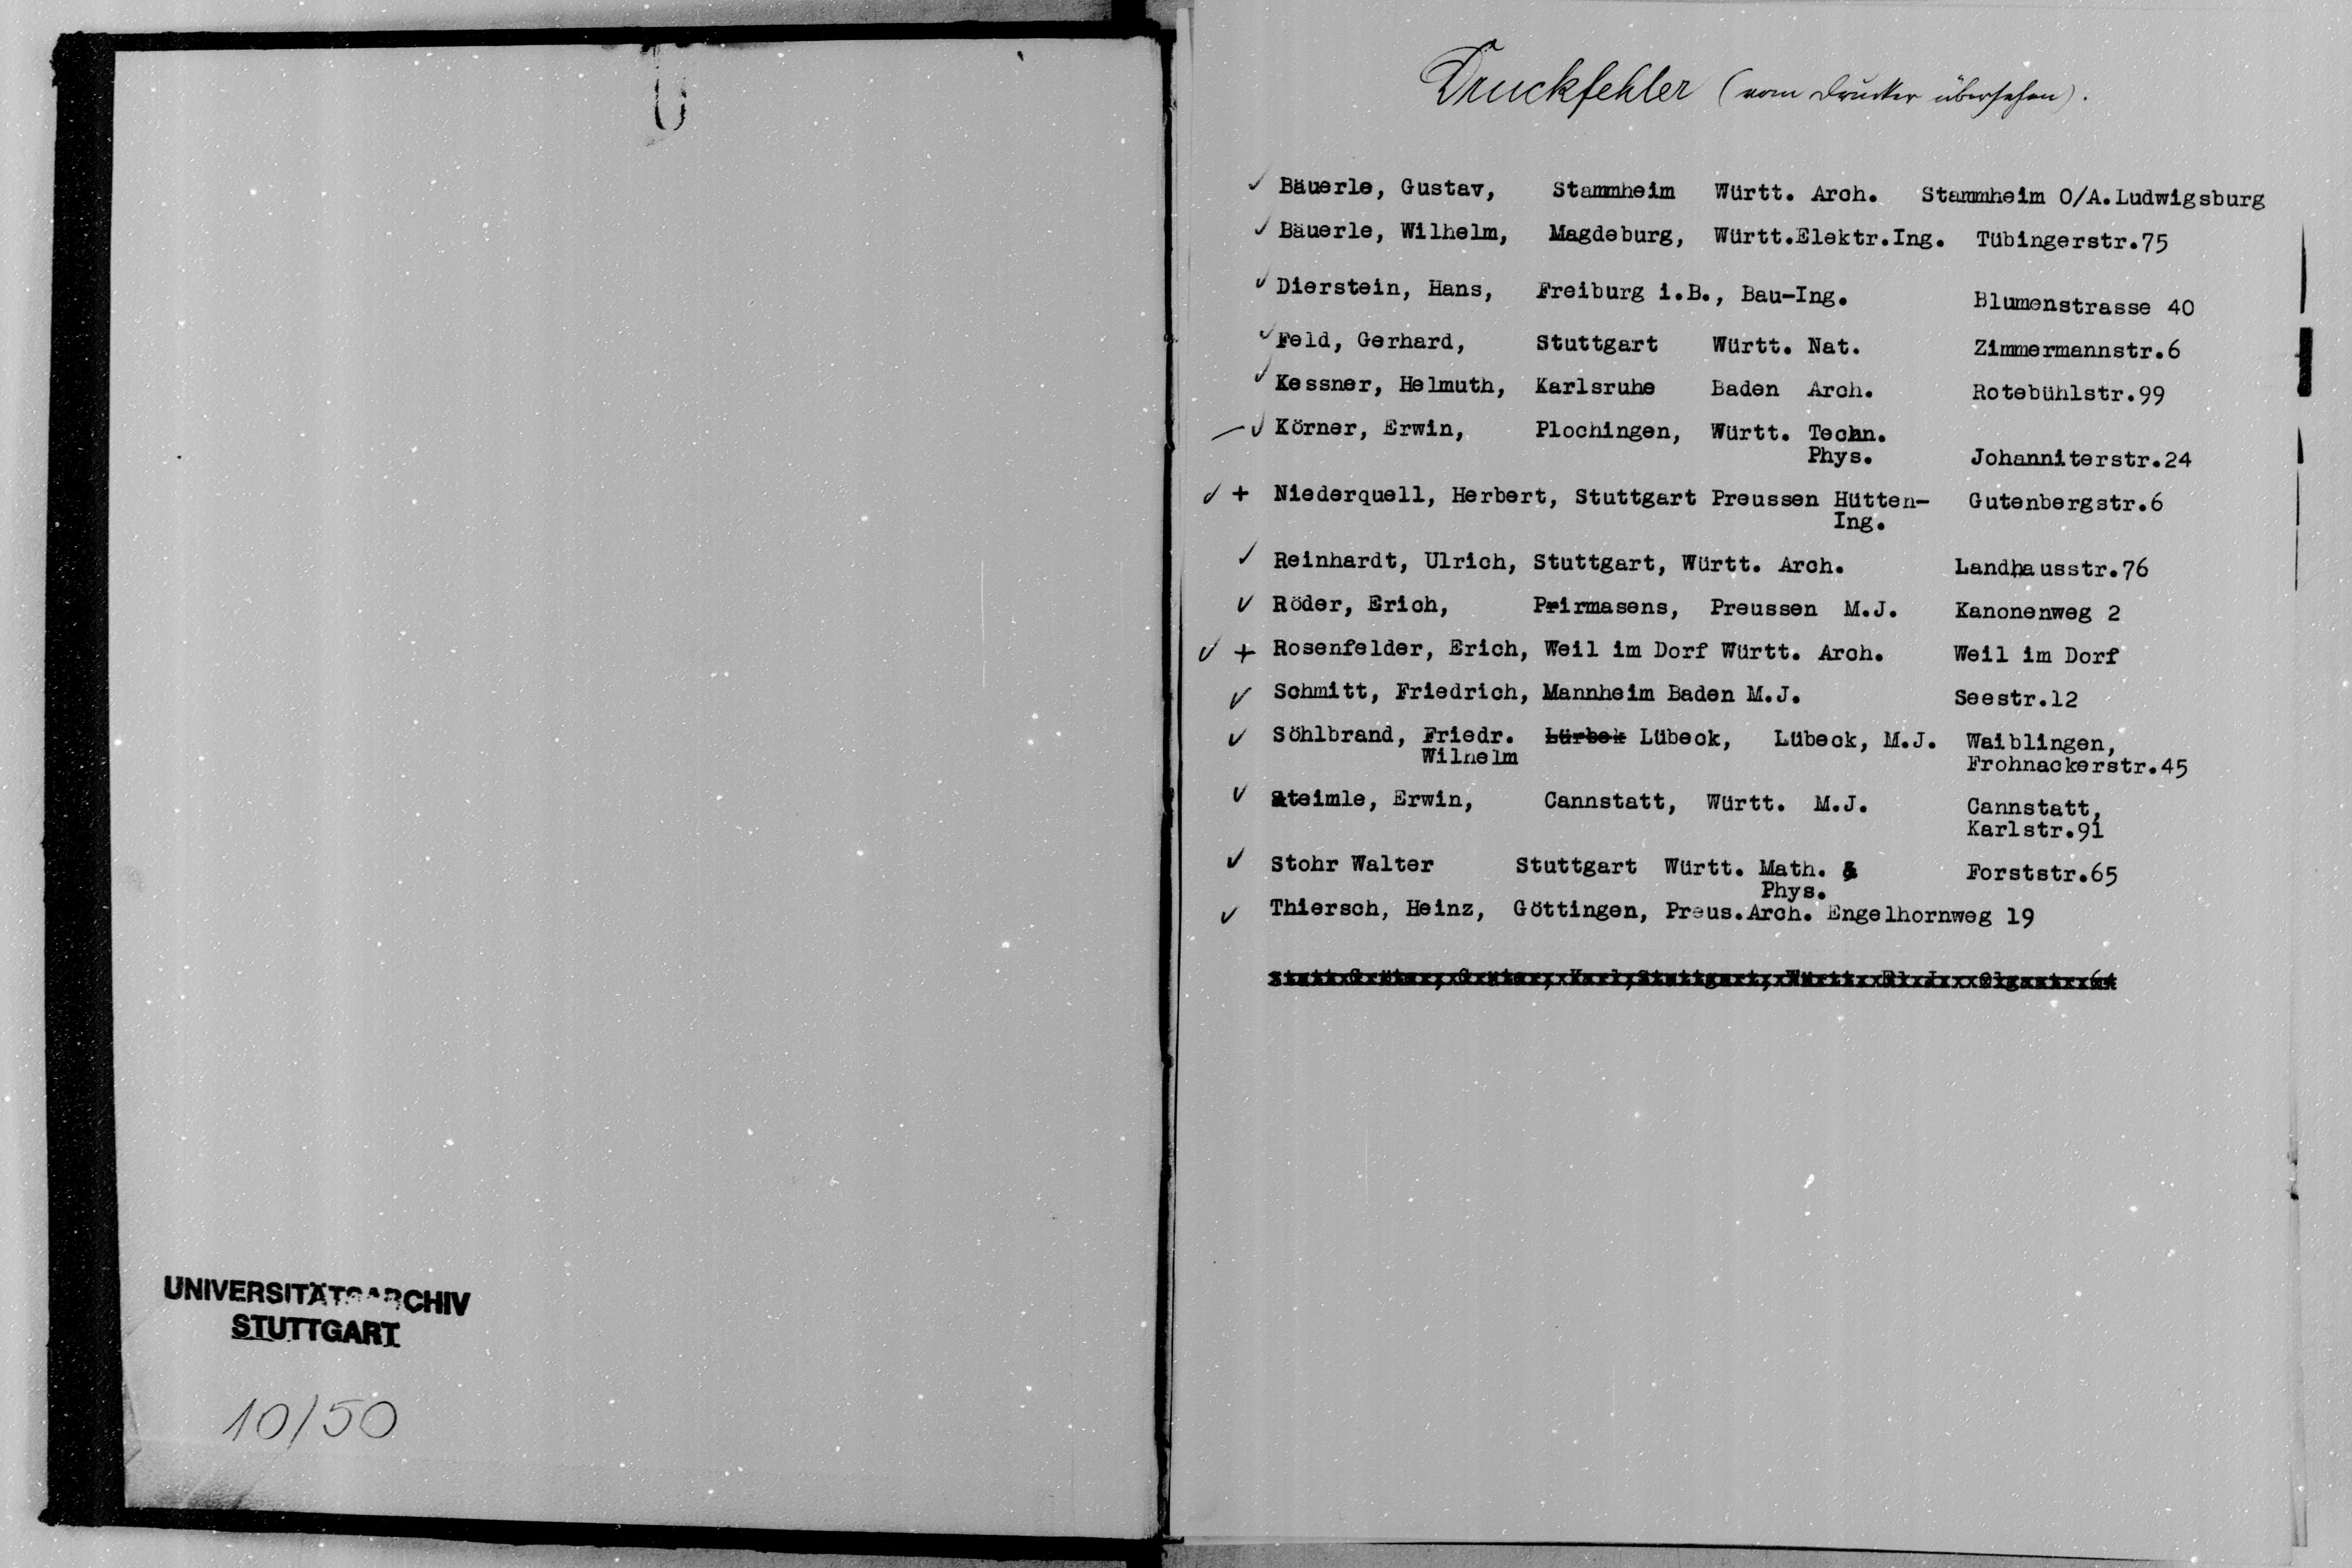 UNIVERSITÄTSARCHIV
STUTTGART
10/50
Druckfehler (vom Drucker übersehen).
✓ Bäuerle, Gustav, Stammheim Württ. Arch. Stammheim O/A.Ludwigsburg
✓ Bäuerle, Wilhelm, Magdeburg, Württ.Elektr.Ing. Tübingerstr.75
✓ Dierstein, Hans, Freiburg i.B., Bau-Ing. Blumenstrasse 40
✓ Feld, Gerhard, Stuttgart Württ. Nat. Zimmermannstr.6
✓ Kessner, Helmuth, Karlsruhe Baden Arch. Rotebühlstr.99
— ✓ Körner, Erwin, Plochingen, Württ. Techn.
Phys. Johanniterstr.24
✓ + Niederquell, Herbert, Stuttgart Preussen Hütten- Gutenbergstr.6
Ing.
✓ Reinhardt, Ulrich, Stuttgart, Württ. Arch. Landhausstr.76
✓ Röder, Erich, Pirmasens, Preussen M.J. Kanonenweg 2
✓ + Rosenfelder, Erich, Weil im Dorf Württ. Arch. Weil im Dorf
✓ Schmitt, Friedrich, Mannheim Baden M.J. Seestr.12
✓ Söhlbrand, Friedr. Lürbek Lübeck, Lübeck, M.J. Waiblingen,
Wilhelm Frohnackerstr.45
✓ Steimle, Erwin, Cannstatt, Württ. M.J. Cannstatt,
Karlstr.91
✓ Stohr Walter Stuttgart Württ. Math. & Forststr.65
Phys.
✓ Thiersch, Heinz, Göttingen, Preus.Arch. Engelhornweg 19